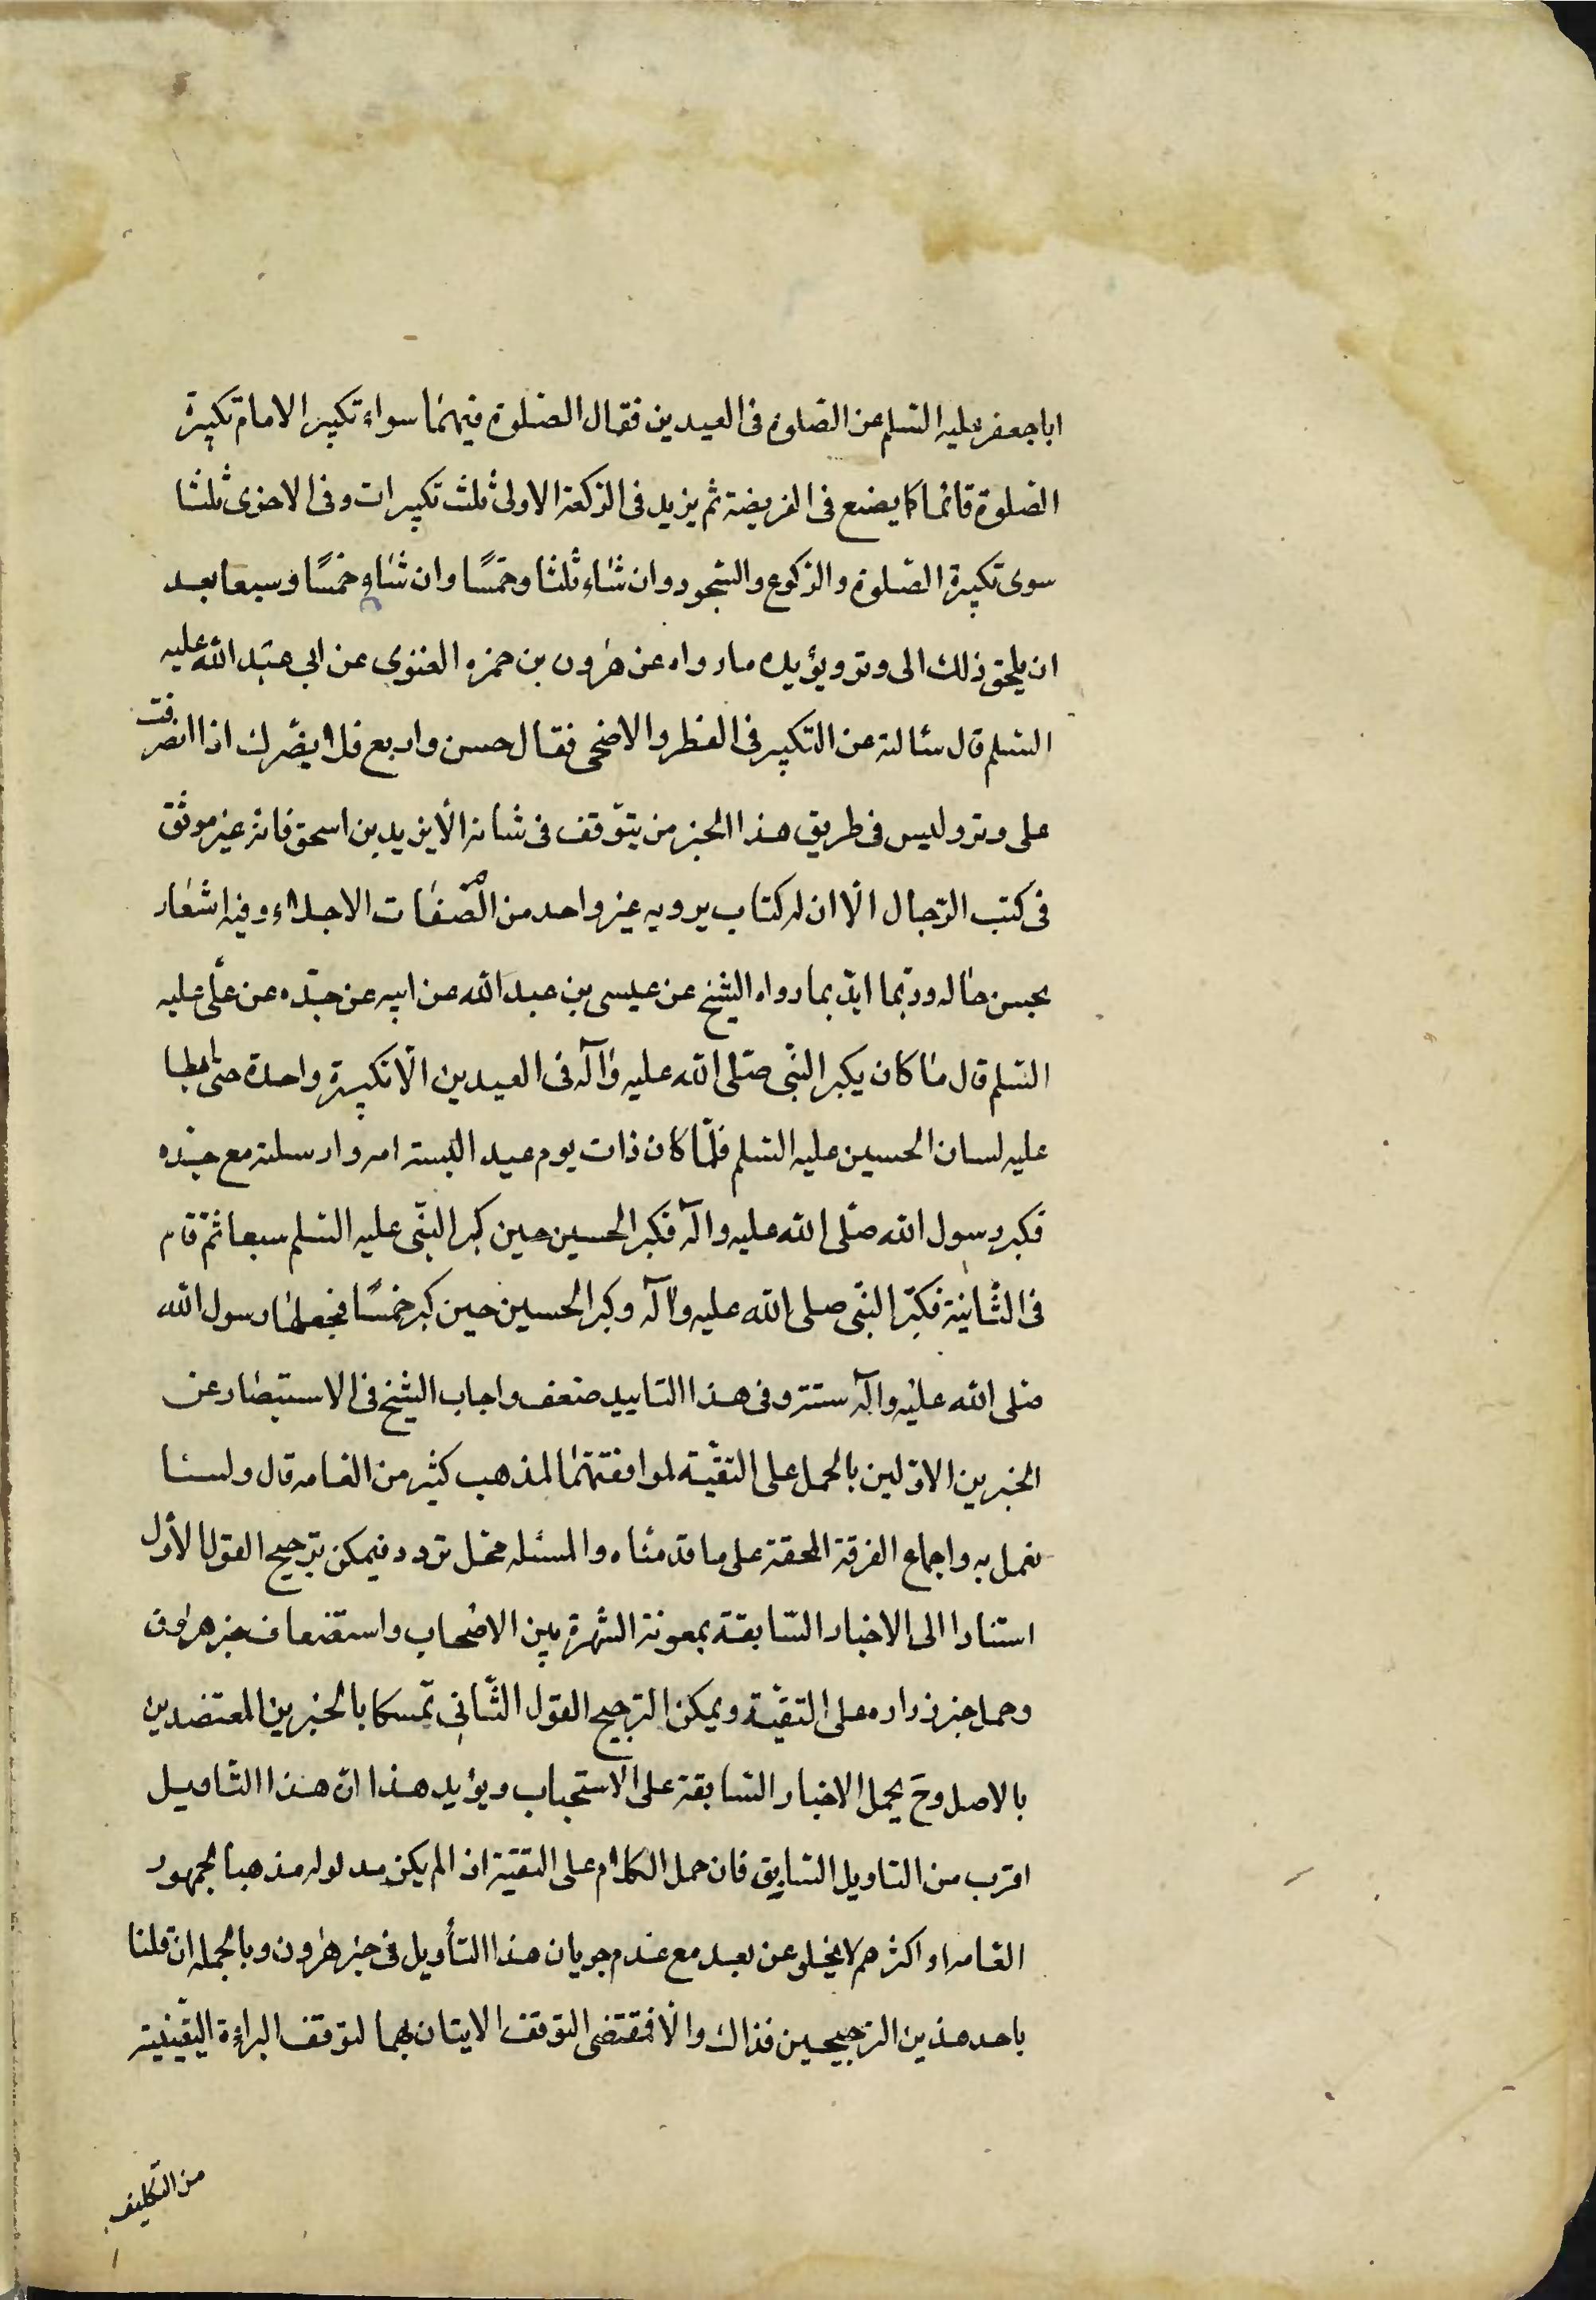 ابا جعفر عليه السلم عن الصلوة فى العيدين فقال الصلوة فيهما سواء تكبير الامام تكبيرة
الصلوة قائما كما يصنع فى الفريضة ثم يزيد فى الركعة الاولى ثلث تكبيرات وفى الاخرى ثلثا
سوى تكبيرة الصلوة والركوع والسجود وان شاء ثلثا وخمسًا وان شاء خمسًا وسبعا بعد
ان يلحق ذلك الى وتر ويؤيده ما رواه عن هرون بن حمزه الغنوى عن ابي عبد الله عليه
السلم قال سئالته عن التكبير فى الفطر والاضحى فقال خمس واربع فلا يضرك اذا انصرفت
على وتر وليس فى طريق هذا الخبر من يتوقف فى شانه الّا يزيد بن اسحق فانه غير موثق
فى كتب الرجال الّا ان له كتاب يرويه غير واحد من الصفات الاجلاء وفيه اشعار
بحسن حاله وربّما ايّد بما رواه الشيخ عن عيسى بن عبد الله عن ابيه عن جدّه عن علّى عليه
السلم قال ما كان يكبر النبّى صلى الله عليه وآله فى العيدين الّا تكبيرة واحدة حتى ابطا
عليه لسان الحسين عليه السلم فلمّا كان ذات يوم عيد البسته امه وارسلته مع جدّه
فكبر رسول الله صلّى الله عليه وآله فكبر الحسين حين كبر النبّى عليه السلم سبعا ثمّ قام
فى الثّانية فكبّر النبّى صلى الله عليه وآله وكبر الحسين حين كبر خمسًا فجعلها رسول الله
صلى الله عليه وآله سنته وفى هذا التاييد ضعف واجاب الشيخ فى الاستبصار عن
الخبرين الاوّلين بالحمل على التقيّة لموافقتهما لمذهب كثير من العامه قال ولسنا
نعمل به واجماع الفرقة المحقة على ما قدمناه والمسئله محل تردد فيمكن ترجيح القول الأول
استنادا الى الاخبار السّابقة بمعونة الشهرة بين الاصحاب واستضعاف خبر هرون
وحمل خبر زراره على التقيّة ويمكن الترجيح القول الثّانى تمّسكا بالخبرين المعتضدين
بالاصل وح يحمل الاخبار السّابقة على الاستحباب ويؤيد هذا انّ هذا التاويل
اقرب من التاويل السّابق فان حمل الكلام على التقيّة اذا لم يكن مدلوله مذهبا لجمهور
العامه او اكثرهم لا يخلو عن بعد مع عدم جريان هذا التأويل فى خبر هرون وبالجمله ان قلنا
باحد هذين الترجيحين فذاك والّا فمقتضى التوقف الاتيان بهما لتوقف البراءة اليقينية
من التكليف